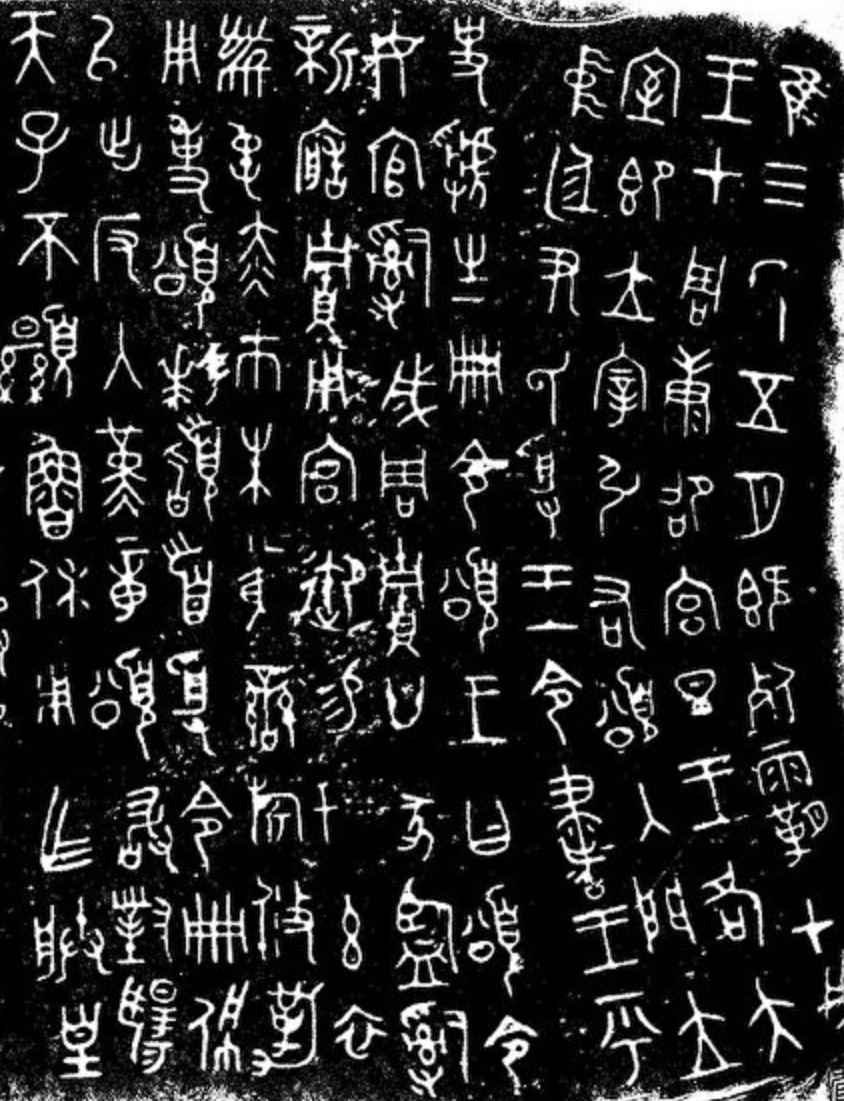 隹三年五月既死霸甲戌
王才周康卲宮旦王各大
室即立宰引右頌入門立
中廷尹氏受王令書王乎
史虢生冊令頌王曰頌令
女官𤔲成周貯廿家監𤔲
新造貯用宮御易女玄衣
黹屯赤巿朱黃䜌旂攸勒
用事頌拜𩒨首受令冊佩
㠯出反入堇章頌敢對揚
天子不顯魯休用乍朕皇